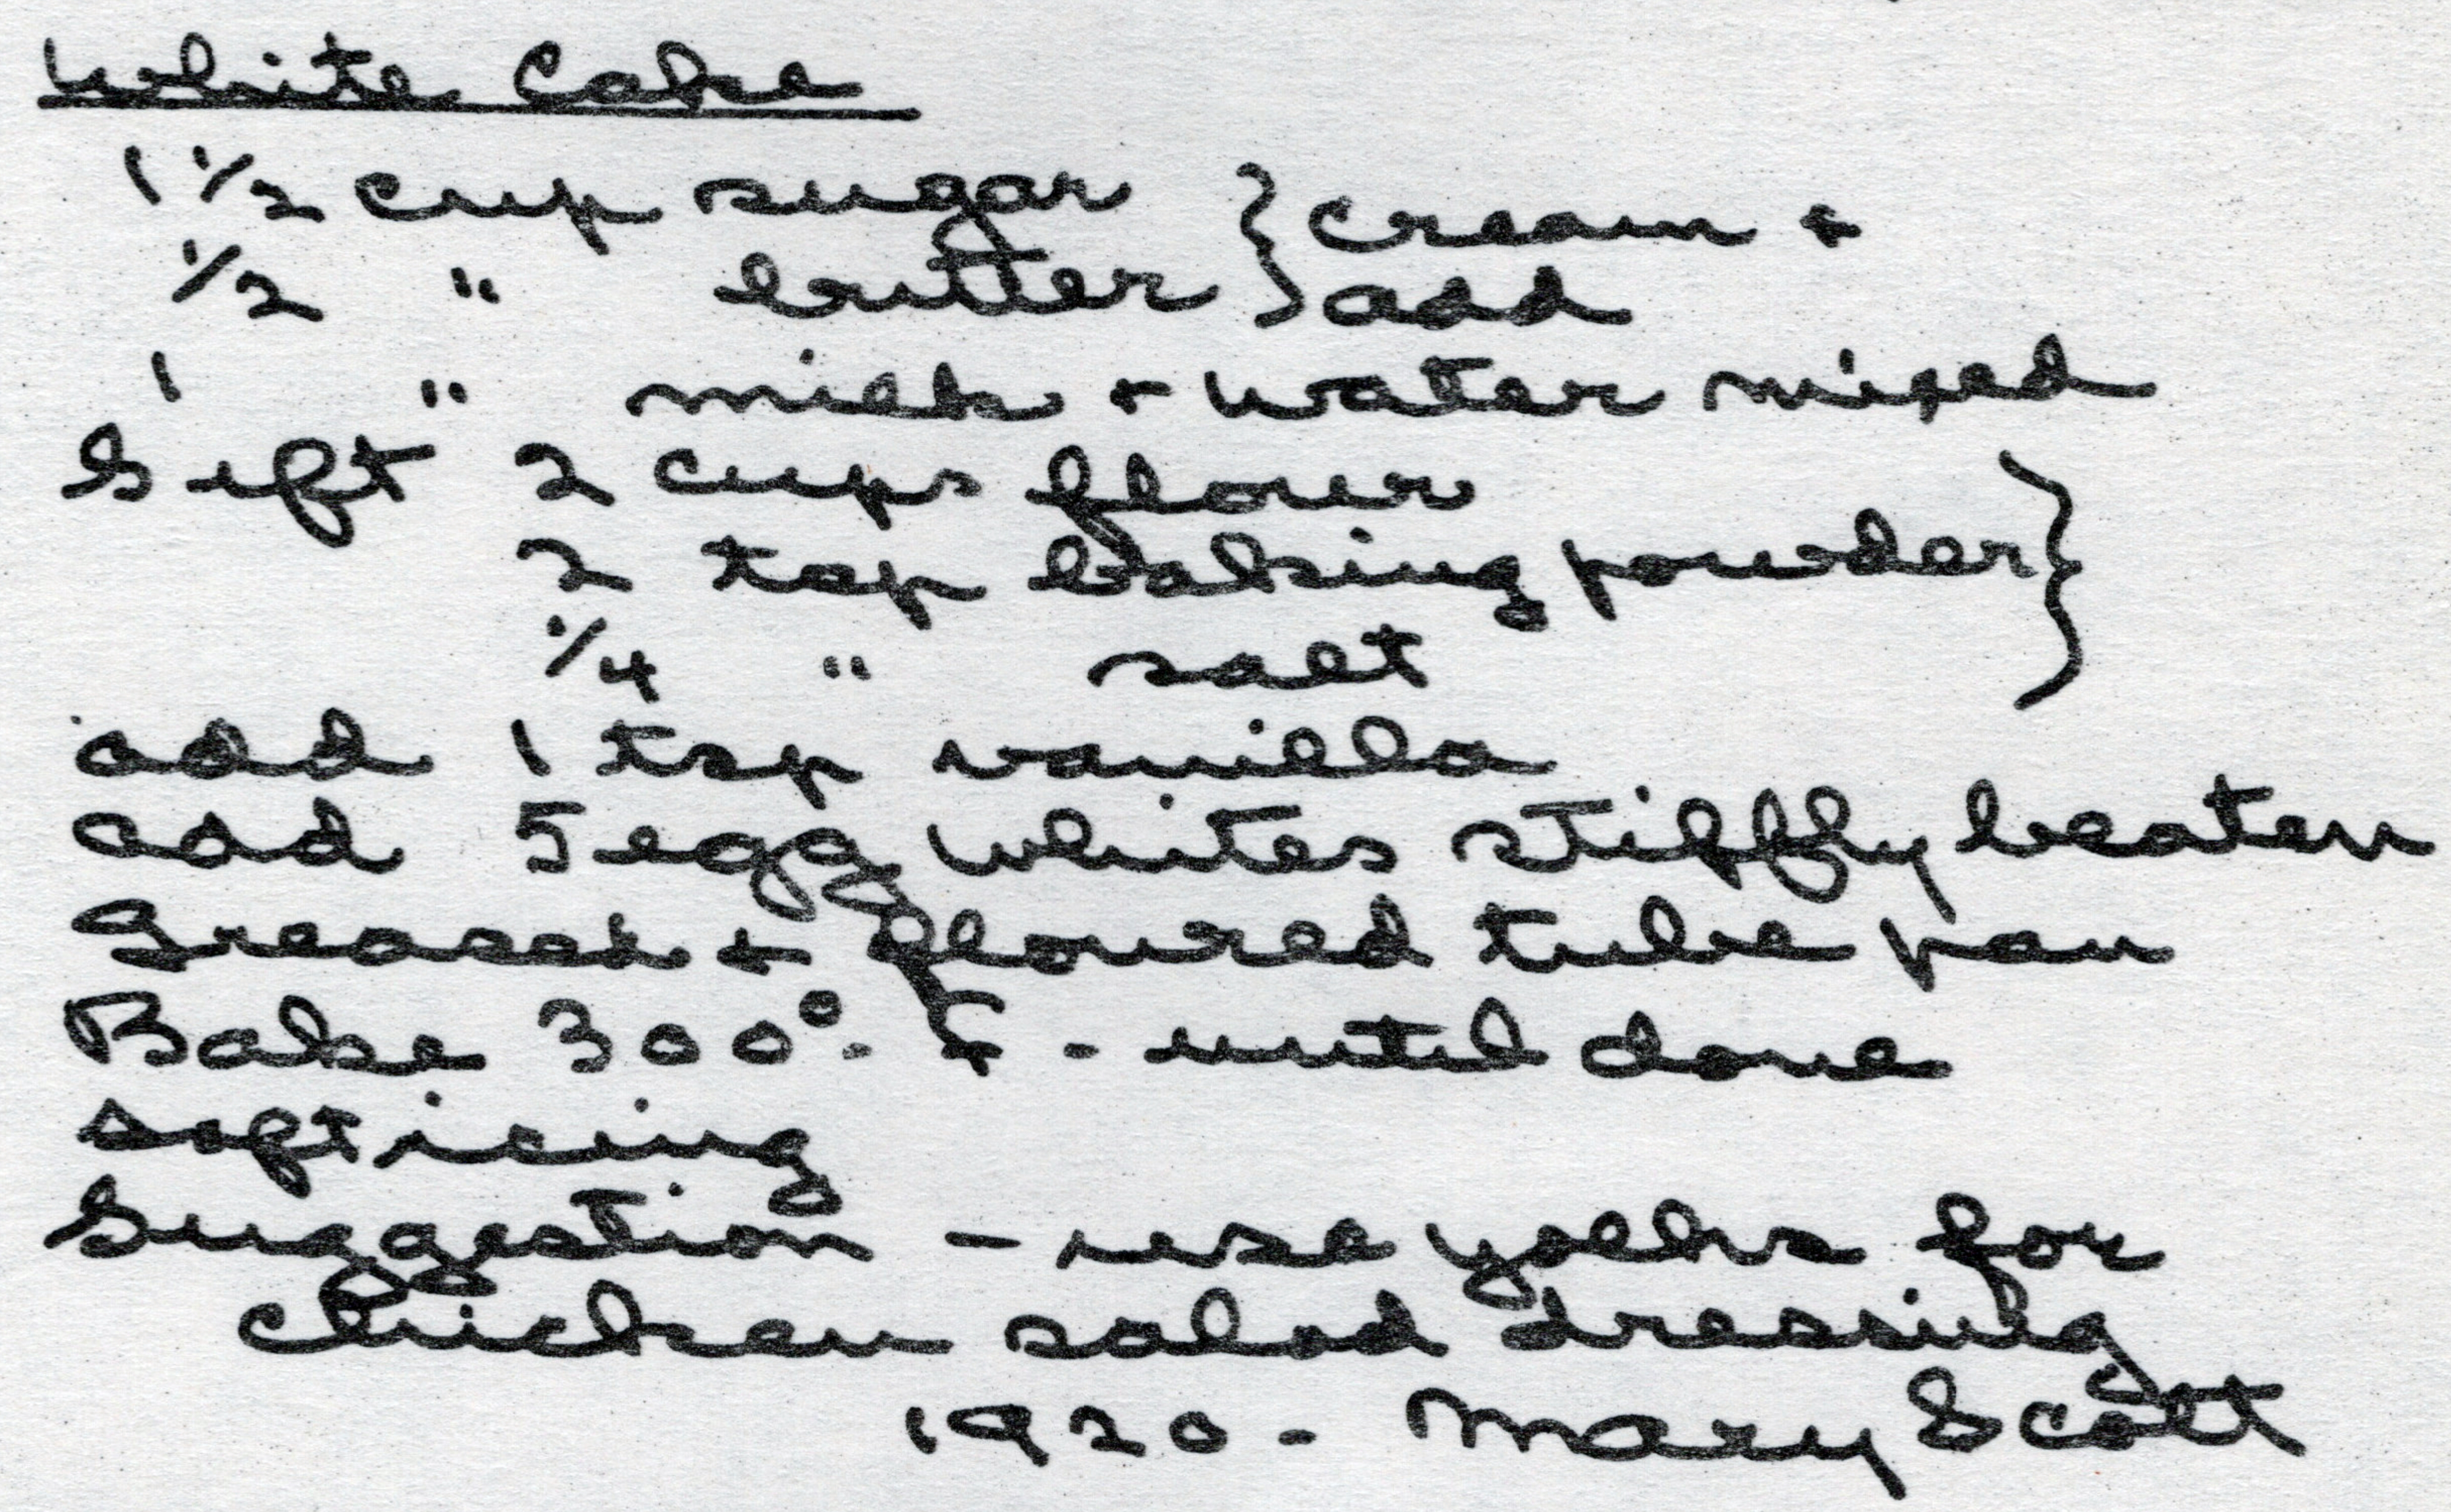 White Cake
1 1/2 cup sugar } cream +
1/2 " butter } add
1 " milk + water mixed
Sift 2 cups flour }
2 tsp baking powder }
1/4 " salt }
add 1 tsp vanilla
add 5 egg whites stiffly beaten
Greased + floured tube pan
Bake 300°. F - until done
soft icing
Suggestion - use yolks for
chicken salad dressing
1920 - Mary Scott